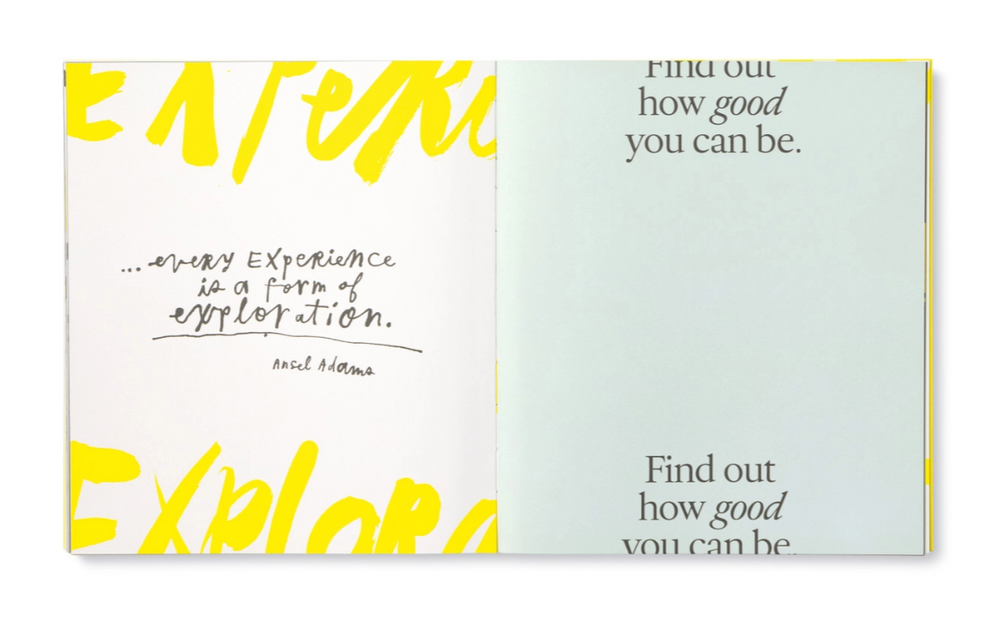 Experi
... every Experience
is a form of
exploration.
Ansel Adams
Explora
Find out
how good
you can be.
Find out
how good
you can be.